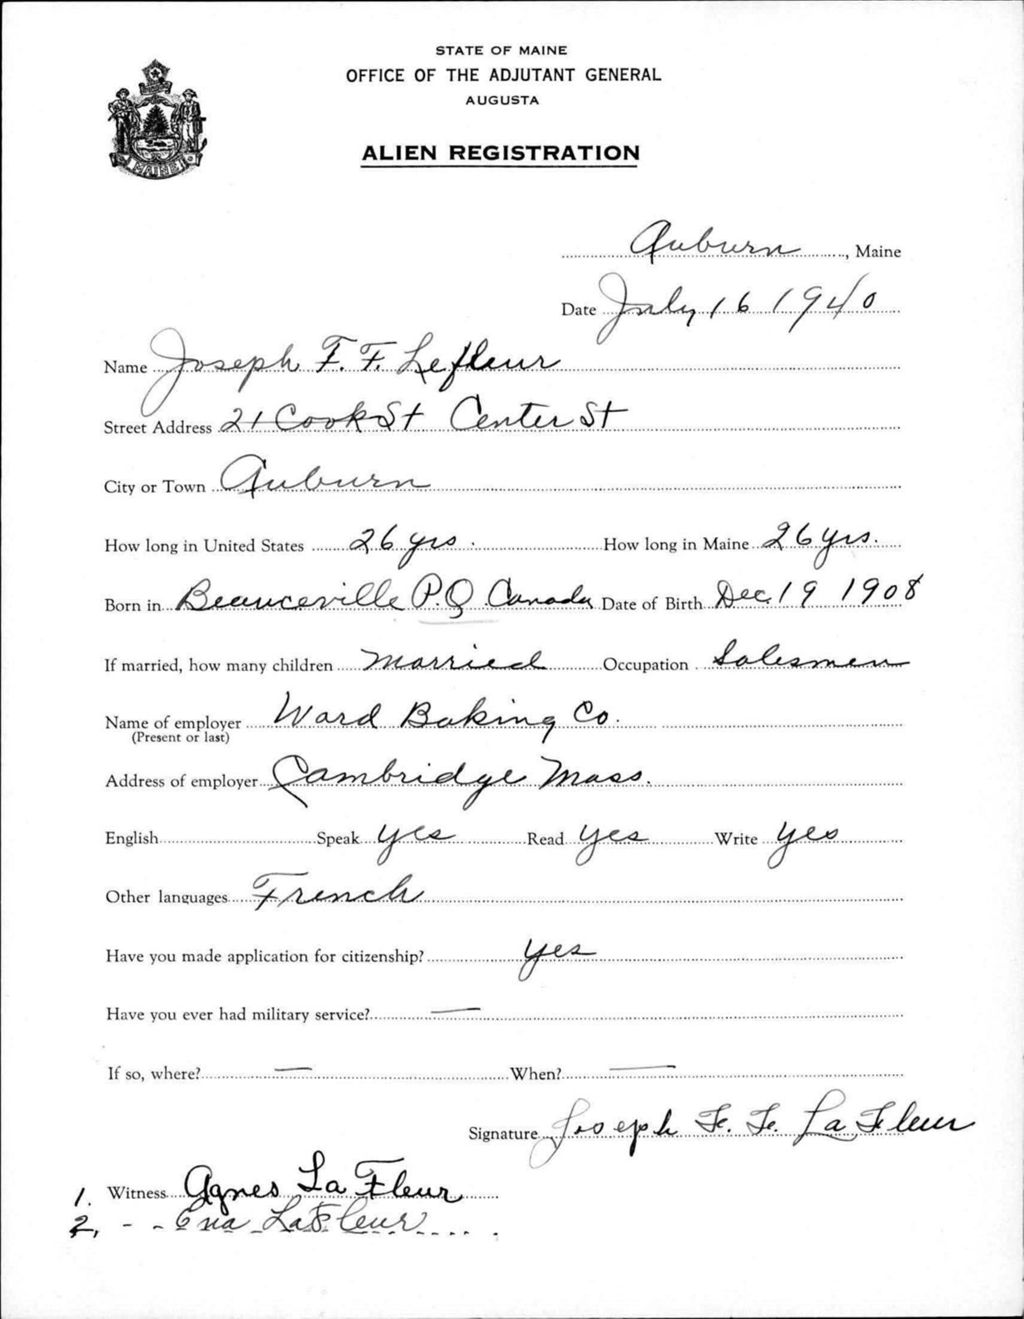 STATE OF MAINE
OFFICE OF THE ADJUTANT GENERAL
AUGUSTA
ALIEN REGISTRATION
MAINE
Auburn, Maine
Date July 16 1940
Name Joseph F. F. Lefleur
Street Address 21 Cook St Center St
City or Town Auburn
How long in United States 26 yrs. How long in Maine 26 yrs.
Born in Beauceville P.Q. Canada Date of Birth Dec. 19 1908
If married, how many children married Occupation Salesmen
Name of employer Ward Baking Co.
(Present or last)
Address of employer Cambridge Mass.
English Speak yes Read yes Write yes
Other languages French
Have you made application for citizenship? yes
Have you ever had military service? —
If so, where? — When? —
Signature Joseph F. F. LaFleur
1. Witness Agnes LaFleur
2. - - LaFleur